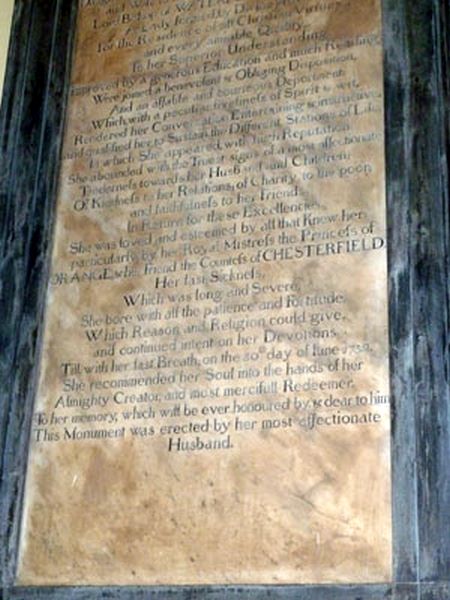 and Wife to
Lord Bishop of WATER
A Lady formed by Divine
For the Residence of all Christian Virtues
and every amiable Quality.
To her Superior Understanding,
improved by a generous Education and much Reading,
Were joined a benevolent & Obliging Disposition,
And an affable and courteous Deportment
Which, with a peculiar liveliness of Spirit & wit,
Rendered her Conversation Entertaining
and qualified her to Sustain the Different Stations of Life
In which She appeared, with high Reputation
She abounded with the Truest signs of a most affectionate
Tenderness towards her Husband and Children
Of Kindness to her Relations, of Charity to the poor
and faithfulness to her Friends
In Return for these Excellencies,
She was loved and esteemed by all that knew her
particularly by her Royal Mistress the Princess of
ORANGE, & her Friend the Countess of CHESTERFIELD
Her last Sickness,
Which was long and Severe,
She bore with all the patience and Fortitude,
Which Reason and Religion could give,
and continued intent on her Devotions,
Till with her last Breath, on the day of June
She recommended her Soul into the hands of her
Almighty Creator, and most mercifull Redeemer.
To her memory, which will be ever honoured by, & dear to him
This Monument was erected by her most affectionate
Husband.